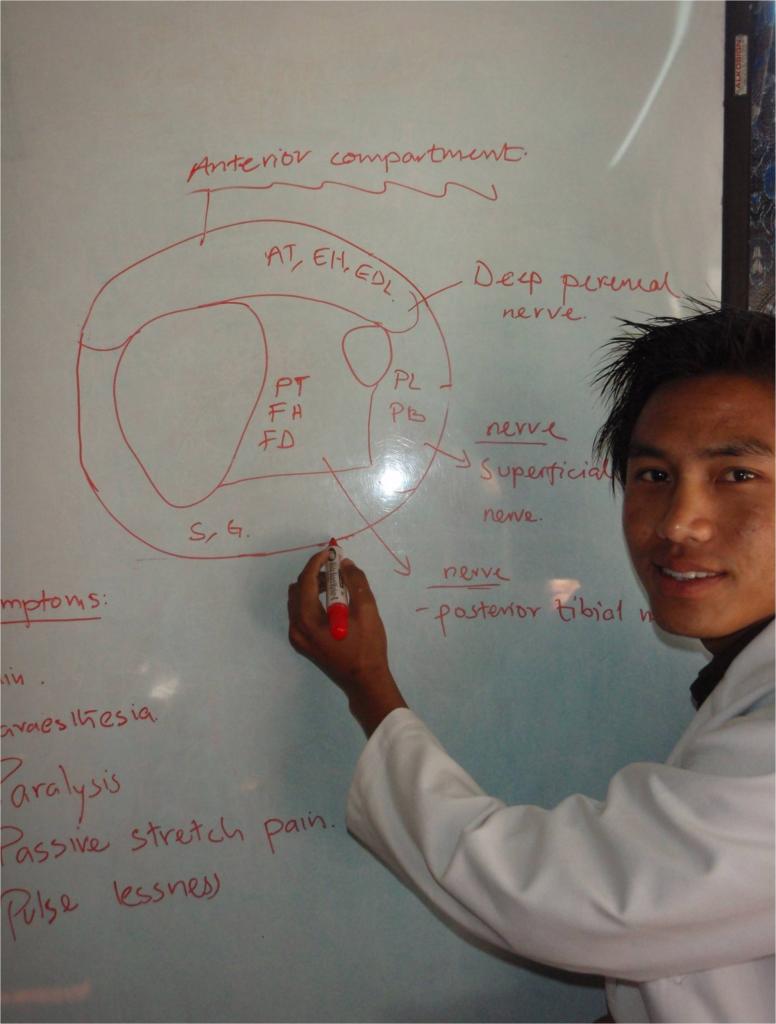 Anterior compartment.
AT, EH, EDL.
Deep pereneal
nerve.
PT
FH
FD
PL
PB
nerve
Superficial
nerve.
S, G.
nerve
- posterior tibial n
mptoms:
in.
araesthesia
Paralysis
Passive stretch pain.
Pulse lessness